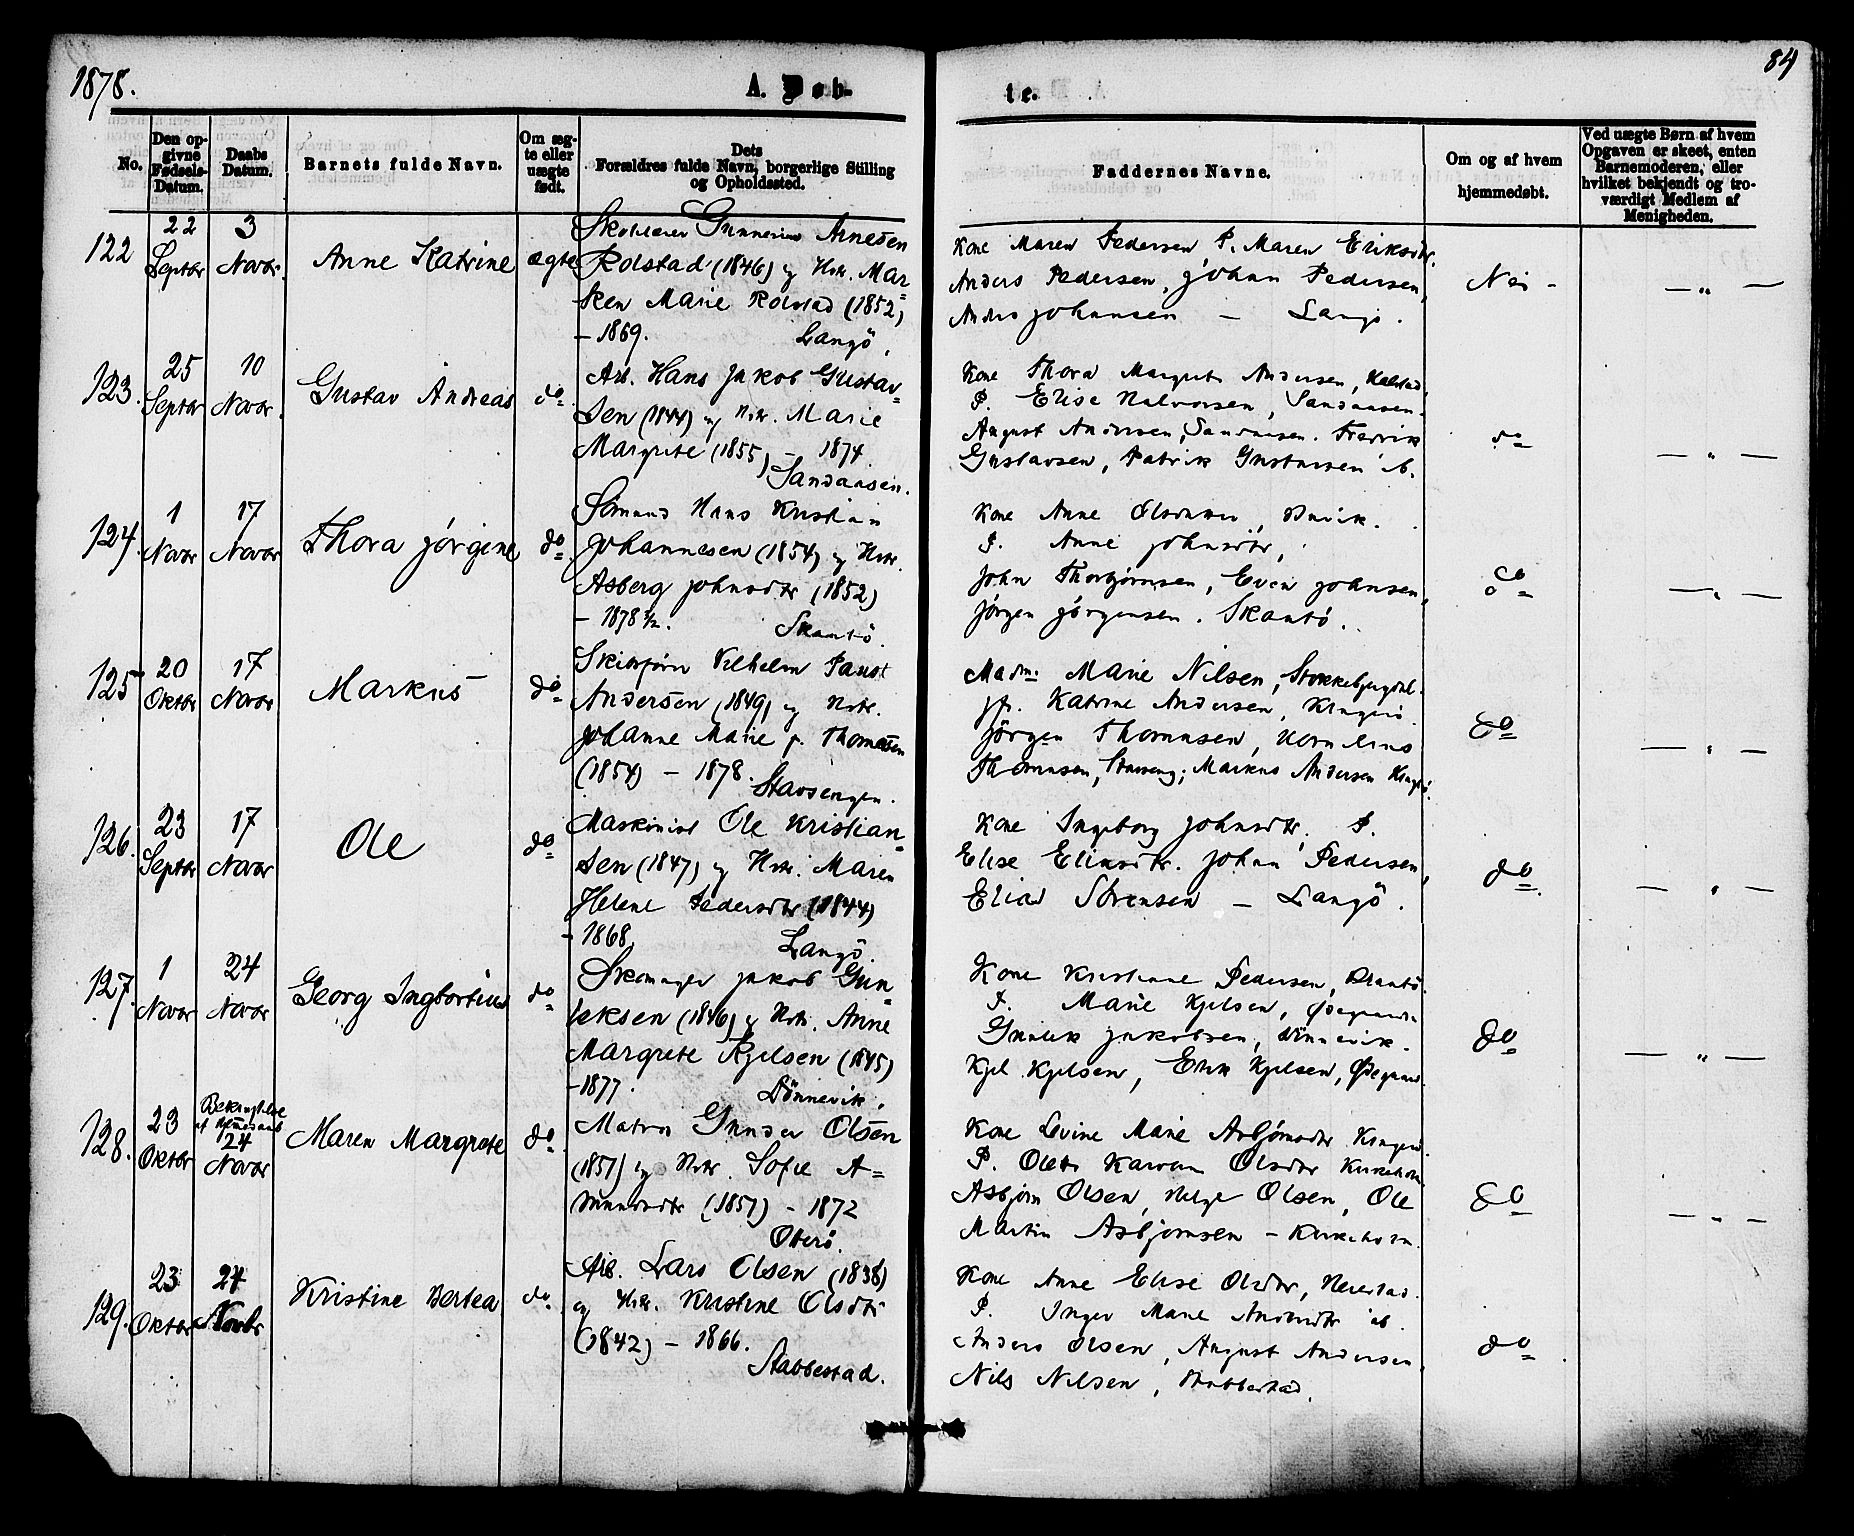 1878.
A. Døb-
te.
84
No.
Den op-
givne
Fødsels-
Datum.
Daabs
Datum.
Barnets fulde Navn.
Om æg-
te eller
uægte
født.
Dets
Forældres fulde Navn, borgerlige Stilling
og Opholdssted.
Faddernes Navne.
Om og af hvem
hjemmedøbt.
Ved uægte Børn af hvem
Opgaven er skeet, enten
Barnemoderen, eller
hvilket bekjendt og tro-
værdigt Medlem af
Menigheden.
122
22
Septbr
3
Novbr.
Anne Katrine
ægte
Skolelærer Gunnerius Arnesen
Rolstad (1846) og Hstr. Mar-
ken Marie Rolstad (1852)
- 1869. Langö.
Kone Maren Pedersen, P. Maren Eriksdtr.
Anders Pedersen, Johan Pedersen,
Anders Johansen - Langö.
Nei -
- " -
123.
25
Septbr
10
Novbr.
Gustav Andreas
do.
Arb. Hans Jakob Gustav-
sen (1844) og Hstr. Marie
Margrete (1855) - 1874.
Sandaasen.
Kone Thora Margrete Andersen,
P. Elise Halvorsen, Sandaasen.
August Andersen, Sandaasen. Fredrik
Gustavsen, Patrik Gustavsen ib.
do
- " -
124.
1
Novbr
17
Novbr
Thora Jørgine
do.
Sömand Hans Kristian
Johannesen (1854) og Hstr.
Asberg Johnsdtr (1852)
- 1878 Skaatö.
Kone Anne
P. Anne Johnsdtr,
John Thorbjørnsen, Even Johnsen,
Jørgen Jørgensen. Skaatö.
do
- " -
125
20
Oktbr
17
Novbr
Markus
do.
Skibsfører Vilhelm Paust
Andersen (1849) og Hstr.
Johanne Marie f. Thomesen
(1854) - 1878. Stavsengen.
Madm: Marie Nilsen,
Jfr. Katrine Andersen, Kragerö.
Jørgen Thomesen, Kornelius
Thomesen, Markus Andersen
do
- " -
126.
23
Septbr
17
Novbr
Ole
do
Maskinist Ole Kristian-
sen (1847) og Hstr. Maren
Helene Pedersdtr (1844)
- 1868. Langö.
Kone Ingeborg Johnsdtr. P.
Elise Eliasdtr. Johan Pedersen,
Elias Sörensen - Langö.
do.
- " -
127.
1
Novbr
24
Novbr
Georg Ingbortius
do
Skomager Jakob Gun-
leksen (1846) og Hstr. Anne
Margrete Kjelsen (1845)
- 1877. Dönnevik.
Kone Kristianne Pedersen,
P. Marie Kjelsen,
Gunlek Jakobsen, Dönnevik.
Kjel Kjelsen, Erik Kjelsen,
do
- " -
128.
23
Oktbr
24
Novbr
Maren Margrete
do.
Matros Gunder Olsen
(1851) og Hstr. Sofie A-
mundsdtr (1851) - 1872
Oterö.
Kone Levine Marie Asbjörnsdtr
P. Olette Karoline Olsdtr
Asbjørn Olsen, Helge Olsen, Ole
Martin Asbjørnsen - Kirkeholm.
do
- " -
129.
23
Oktbr
24
Novbr
Kristine Bertea
do.
Arb. Lars Olsen (1838)
og Hstr. Kristine Olsdtr
(1842) - 1866.
Stabbestad.
Kone Anne Elise Olsdtr,
P. Inger Marie ib.
Anders Olsen, August Andersen,
Nils Nilsen, Stabbestad.
do